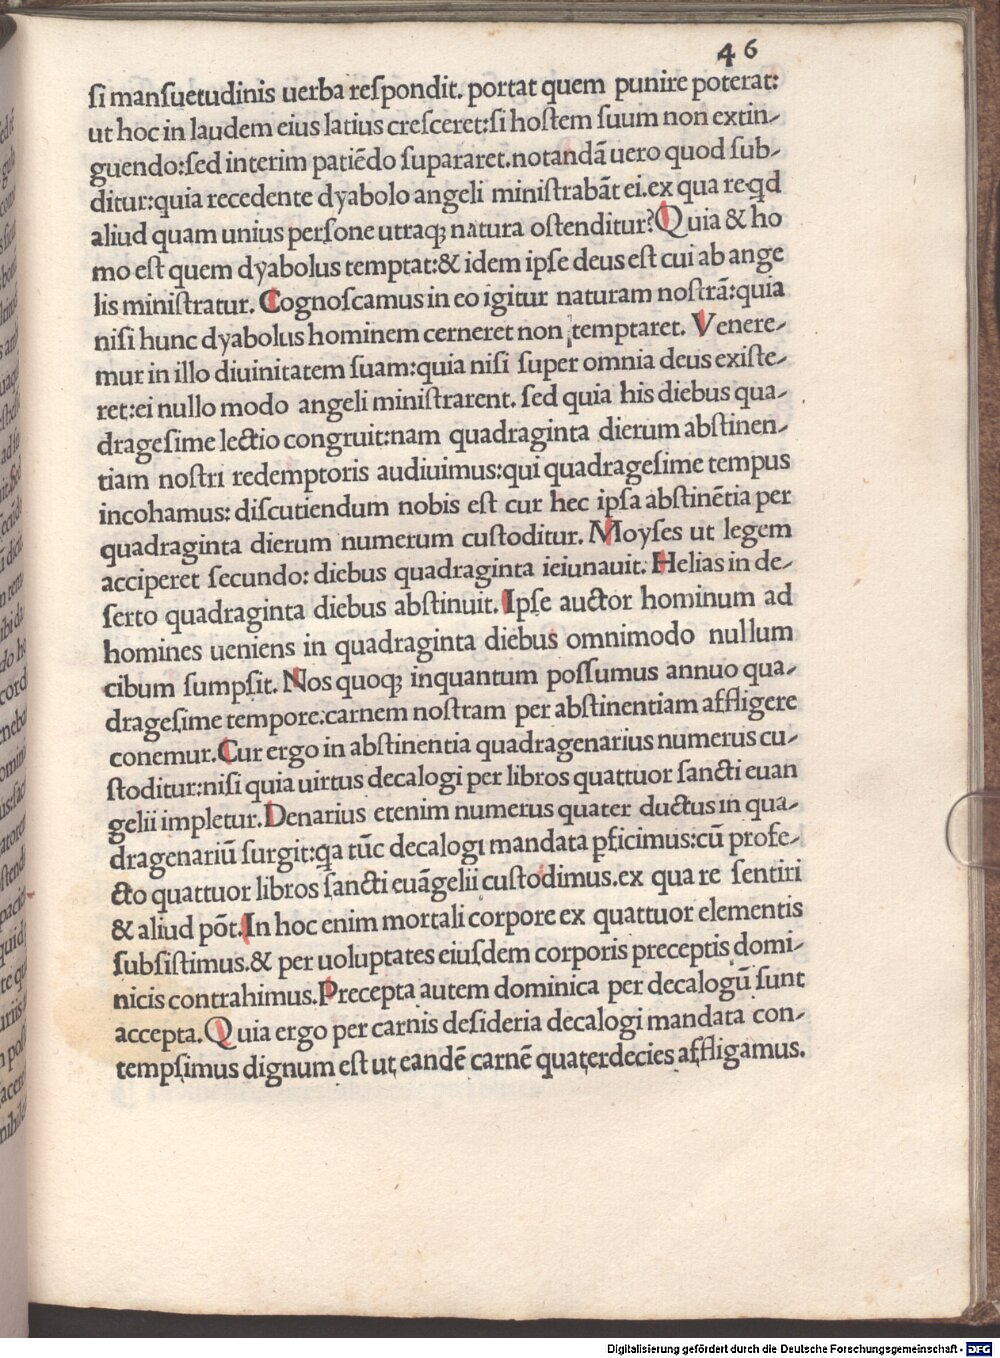 46
ſi manſuetudinis uerba reſpondit. portat quem punire poterat:
ut hoc in laudem eius latius creſceret:ſi hoſtem ſuum non extin-
guendo:ſed interim patiēdo ſupararet.notandā uero quod ſub-
ditur:quia recedente dyabolo angeli miniſtrabāt ei.ex qua re qd
aliud quam unius perſone utraqꝫ natura oſtenditur?Quia & ho
mo eſt quem dyabolus temptat:& idem ipſe deus eſt cui ab ange
lis miniſtratur. Cognoſcamus in eo igitur naturam noſtrā:quia
niſi hunc dyabolus hominem cerneret non temptaret. Venere-
mur in illo diuinitatem ſuam:quia niſi ſuper omnia deus exiſte-
ret:ei nullo modo angeli miniſtrarent. ſed quia his diebus qua-
drageſime lectio congruit:nam quadraginta dierum abſtinen-
tiam noſtri redemptoris audiuimus:qui quadrageſime tempus
incohamus: diſcutiendum nobis eſt cur hec ipſa abſtinētia per
quadraginta dierum numerum cuſtoditur. Moyſes ut legem
acciperet ſecundo: diebus quadraginta ieiunauit: Helias in de-
ſerto quadraginta diebus abſtinuit. Ipſe auctor hominum ad
homines ueniens in quadraginta diebus omnimodo nullum
cibum ſumpſit. Nos quoqꝫ inquantum poſſumus annuo qua-
drageſime tempore:carnem noſtram per abſtinentiam affligere
conemur.Cur ergo in abſtinentia quadragenarius numerus cu-
ſtoditur:niſi quia uirtus decalogi per libros quattuor ſancti euan
gelii impletur.Denarius etenim numerus quater ductus in qua-
dragenariū ſurgit:qa tūc decalogi mandata ꝑficimus:cū profe-
cto quattuor libros ſancti euāgelii cuſtodimus.ex qua re ſentiri
& aliud pōt.In hoc enim mortali corpore ex quattuor elementis
ſubſiſtimus.& per uoluptates eiuſdem corporis preceptis domi-
nicis contrahimus.Precepta autem dominica per decalogū ſunt
accepta.Quia ergo per carnis deſideria decalogi mandata con-
tempſimus dignum eſt ut eandē carnē quaterdecies affligamus.
Digitalisierung gefördert durch die Deutsche Forschungsgemeinschaft - DFG